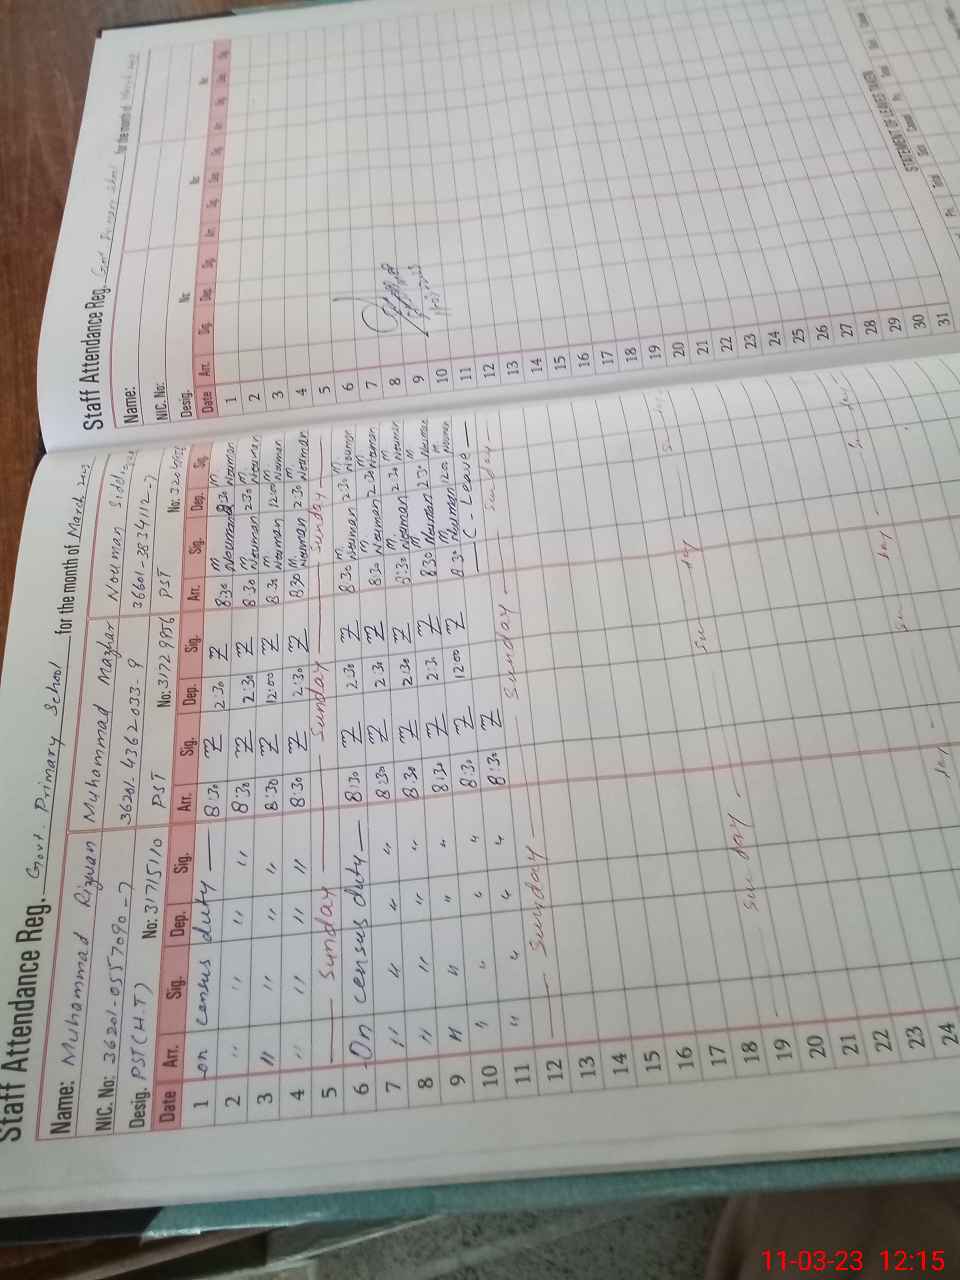 Staff Attendance Reg. Govt. Primary School for the month of March 2023
Name: Muhammad Rizwan Muhammad Mazhar Nouman Siddique
NIC. No: 36201-0557090-7 36201-4362033-9 36601-3834112-7
Desig. PST(H.T) No: 31715110 PST No: 31729856 PST No:
Date Arr. Sig. Dep. Sig. Arr. Sig. Dep. Sig. Arr. Sig. Dep. Sig.
1 -on census duty — 8:30 Z 2:30 Z 8:30 M. Nouman 2:30 M. Nouman
2 " " " 8:30 Z 2:30 Z 8:30 M. Nouman 2:30 M. Nouman
3 " " " " 8:30 Z 12:00 Z 8:30 M. Nouman 12:00 M. Nouman
4 " " " " 8:30 Z 2:30 Z 8:30 M. Nouman 2:30 M. Nouman
5 — Sunday — Sunday — Sunday —
6 -On census duty — 8:30 Z 2:30 Z 8:30 M. Nouman 2:30 M. Nouman
7 " " " " 8:30 Z 2:30 Z 8:30 M. Nouman 2:30 M. Nouman
8 " " " " 8:30 Z 2:30 Z 8:30 M. Nouman 2:30 M. Nouman
9 " " " " 8:30 Z 2:30 Z 8:30 M. Nouman 2:30 M. Nouman
10 " " " " 8:30 Z 12:00 Z 8:30 M. Nouman 12:00 M. Nouman
11 " " " 8:30 Z — C-Leave —
12 — Sunday — Sunday — Sunday —
13
14
15
16
17
18
19 — Sun day — Sun day
20
21
22
23
24
Staff Attendance Reg. Govt Primary School for the month of
Name:
NIC. No: No: No:
Desig. No:
Date Arr. Sig. Dep. Sig. Arr. Sig. Dep. Sig. Arr. Sig. Dep. Sig.
1
2
3
4
5
6
7
8
9
10
11
12
13
14
15
16
17
18
19
20
21
22
23
24
25
26
27
28
29
30
31
STATEMENT OF LEAVES TAKEN
11-03-23 12:15